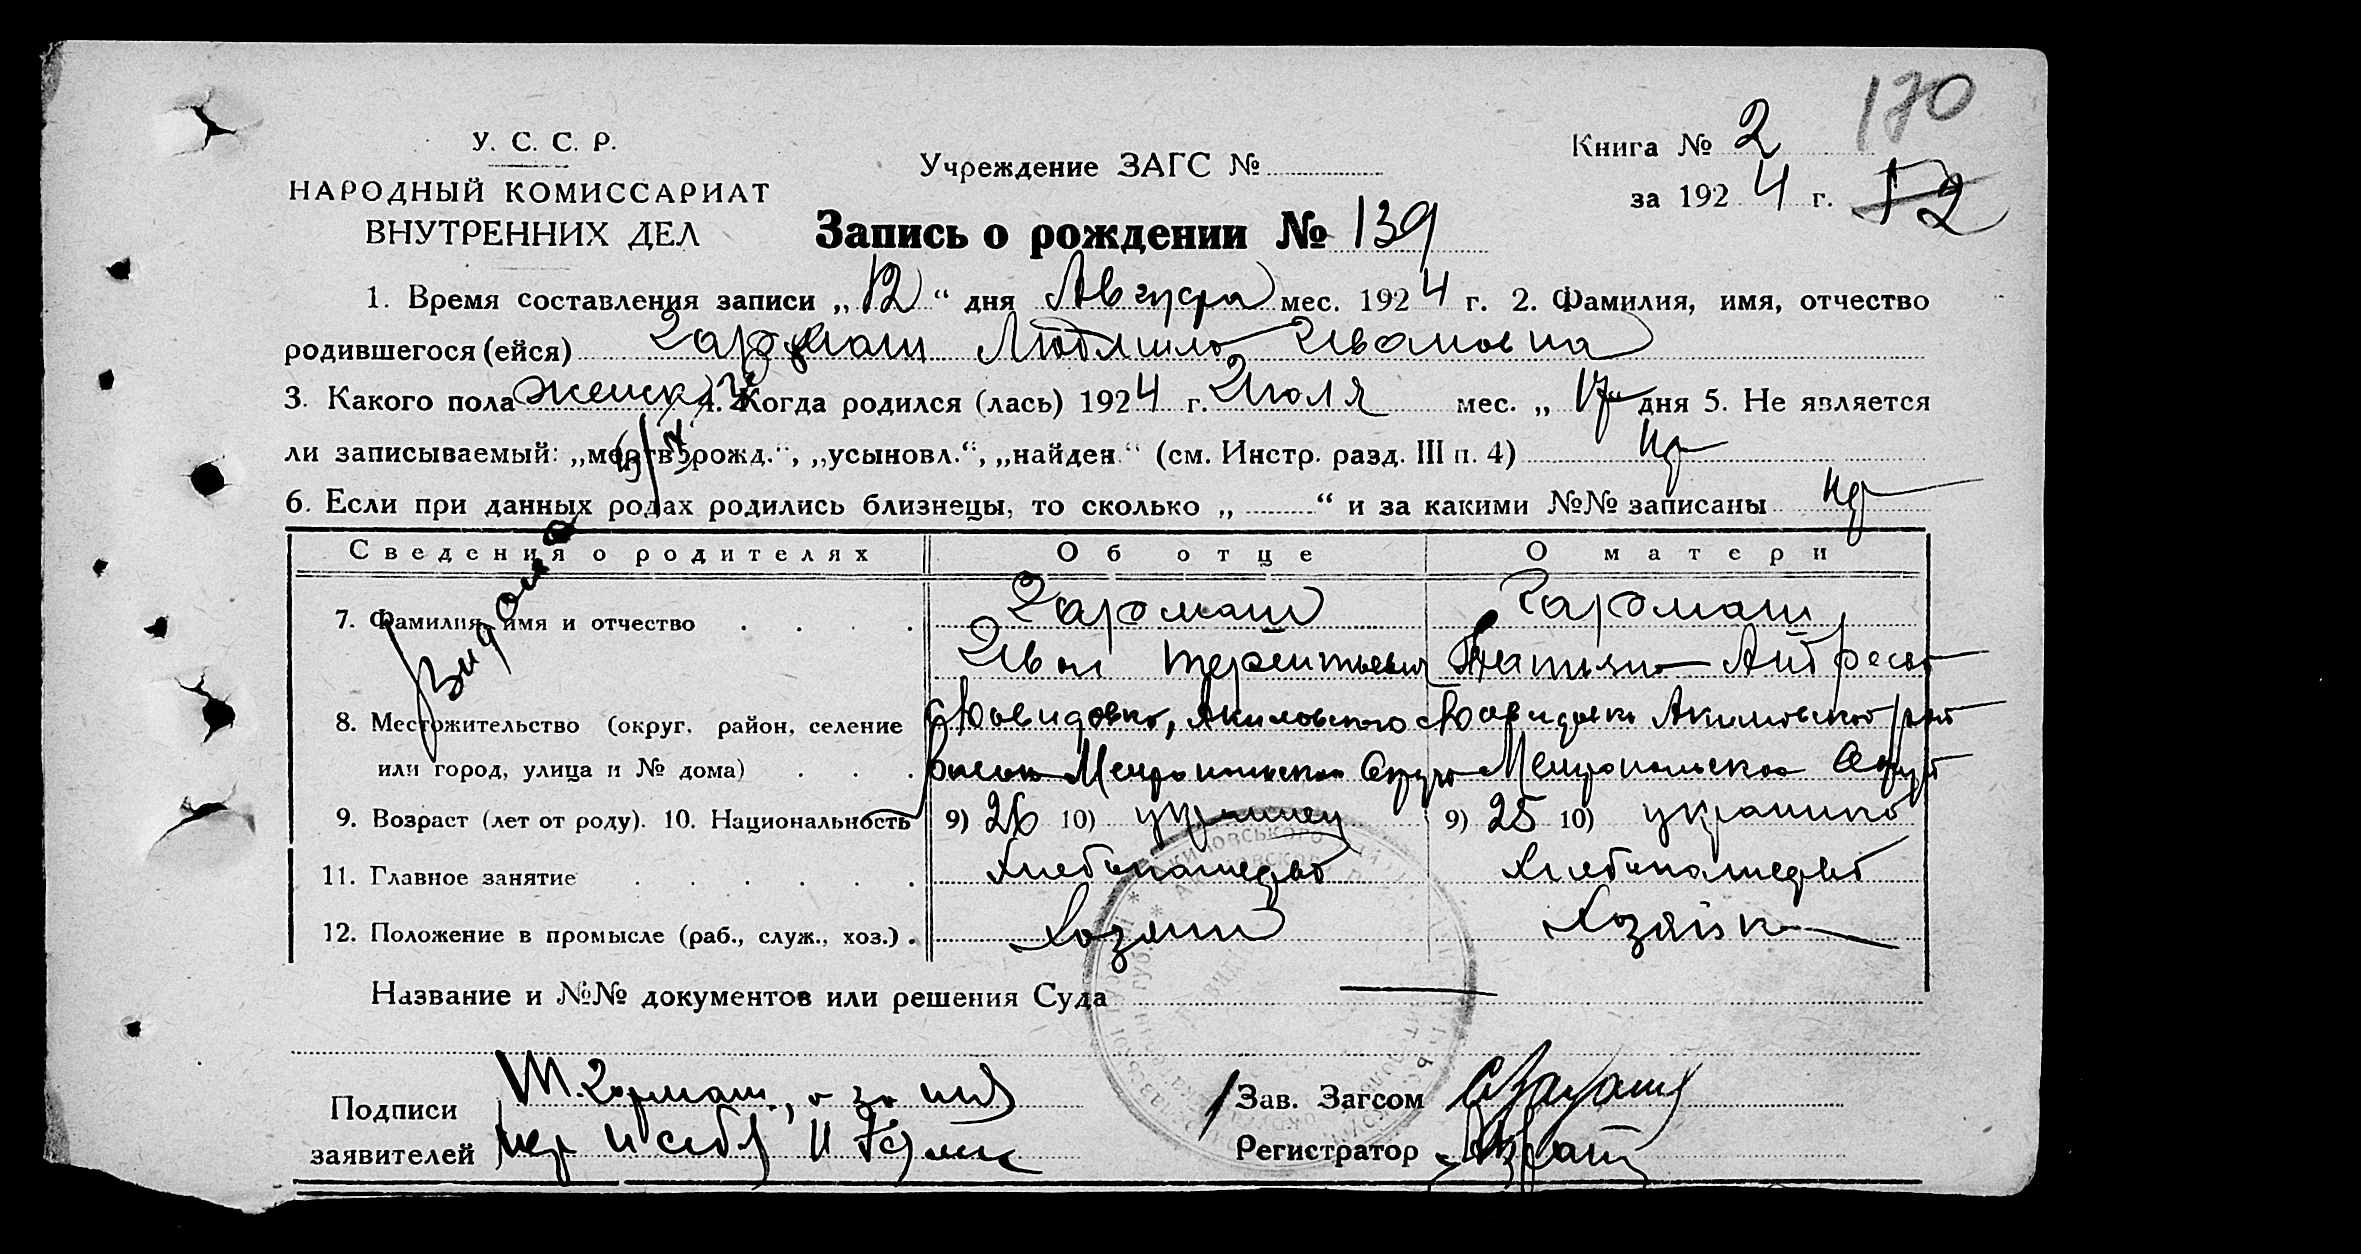 170
У. С. С. Р.
НАРОДНЫЙ КОМИССАРИАТ
ВНУТРЕННИХ ДЕЛ
Учреждение ЗАГС №
Книга № 2
за 1924 г. 12
Запись о рождении № 139
1. Время составления записи „12“ дня Августа мес. 1924 г. 2. Фамилия, имя, отчество
родившегося (ейся) Гармаш Людмила Ивановна
3. Какого пола женск 4. Когда родился (лась) 1924 г. Июля мес. „17“ дня 5. Не является
ли записываемый: „мертворожд.“, „усыновл.“, „найден.“ (см. Инстр. разд. III п. 4) нет
6. Если при данных родах родились близнецы, то сколько „ “ и за какими №№ записаны нет
Сведения о родителях Об отце О матери
7. Фамилия, имя и отчество Гармаш Гармаш
Иван Терентьевич Татьяна
8. Местожительство (округ, район, селение Давидовка, Акимовского Давидовка Акимовского
или город, улица и № дома) Мелитопольского Округа Мелитопольского Округа
9. Возраст (лет от роду). 10. Национальность 9) 26 10) украинец 9) 25 10) украинка
11. Главное занятие Хлебопашество Хлебопашество
12. Положение в промысле (раб., служ., хоз.) Хозяин Хозяйка
Название и №№ документов или решения Суда
Подписи Гармаш, а за
заявителей
Зав. Загсом
Регистратор